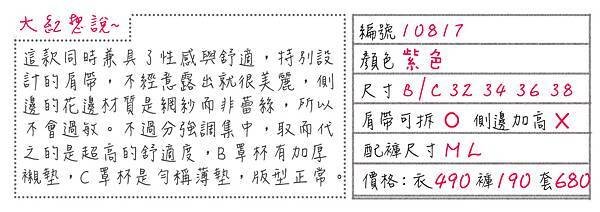 大紅想說~
這款同時兼具了性感與舒適，特別設
計的肩帶，不經意露出就很美麗，側
邊的花邊材質是網紗而非蕾絲，所以
不會過敏。不過分強調集中，取而代
之的是超高的舒適度，B罩杯有加厚
襯墊，C罩杯是勻稱薄墊，版型正常。
編號 10817
顏色 紫色
尺寸 B/C 32 34 36 38
肩帶可拆 O 側邊加高 X
配褲尺寸 M L
價格：衣490 褲190 套680